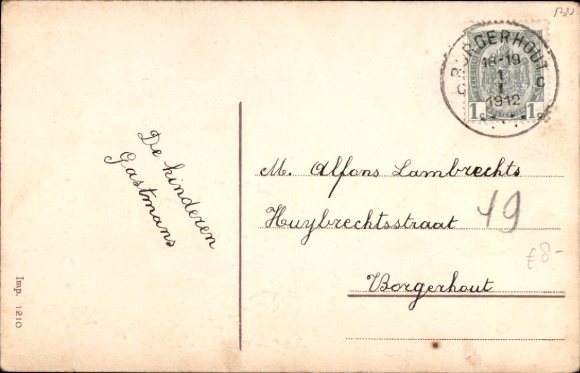 BN
BORGERHOUT
18-19
1
I
1912
C C
1c 1c
De kinderen
Gastmans
M. Alfons Lambrechts
Huybrechtsstraat 49
£8-
Borgerhout
Imp. 1210